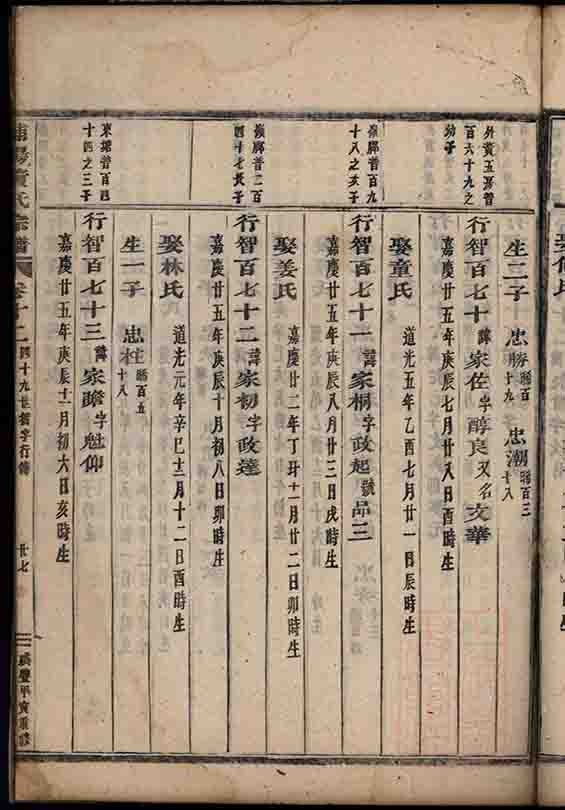 生二子
忠勝 賜百十九
忠潮 賜百三十八
外黃玉 智百六十九之幼子
行智百七十 諱家佐 字醇良 又名文華
嘉慶廿五年庚辰七月廿八日酉時生
娶童氏
道光五年乙酉七月廿一日辰時生
智百九十八之次子
行智百七十一 諱家桐 字政起 號品三
嘉慶廿五年庚辰八月廿三日戌時生
娶姜氏
嘉慶廿二年丁丑十一月廿二日卯時生
智二百四十七長子
行智百七十二 諱家初 字政達
嘉慶廿五年庚辰十月初八日卯時生
娶林氏
道光元年辛巳十二月十二日酉時生
生一子
忠柱 賜百五十八
東 智百四十四之三子
行智百七十三 諱家瞻 字魁仰
嘉慶廿五年庚辰十一月初六日亥時生
陽 氏宗譜
卷十二
四十九世 智字行傳
廿七
咸豐甲寅重修